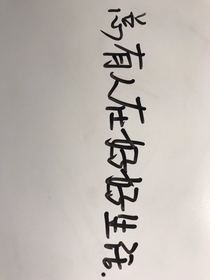 尚有人在好好生活.